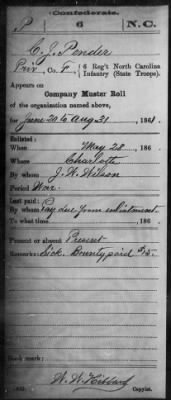 Confederate.
P 6 N.C.
C. J. Pender
Priv, Co. F, 6 Reg't North Carolina Infantry (State Troops).
Appears on
Company Muster Roll
of the organization named above,
for June 20 to Aug 31, 1861.
Enlisted:
When May 28, 186
Where Charlotte
By whom J. W. Wilson
Period War
Last paid:
By whom Pay due from enlistment
To what time , 186
Present or absent Present
Remarks: Sick. Bounty paid $15.
Book mark:
W. W. Hibbard
Copyist.